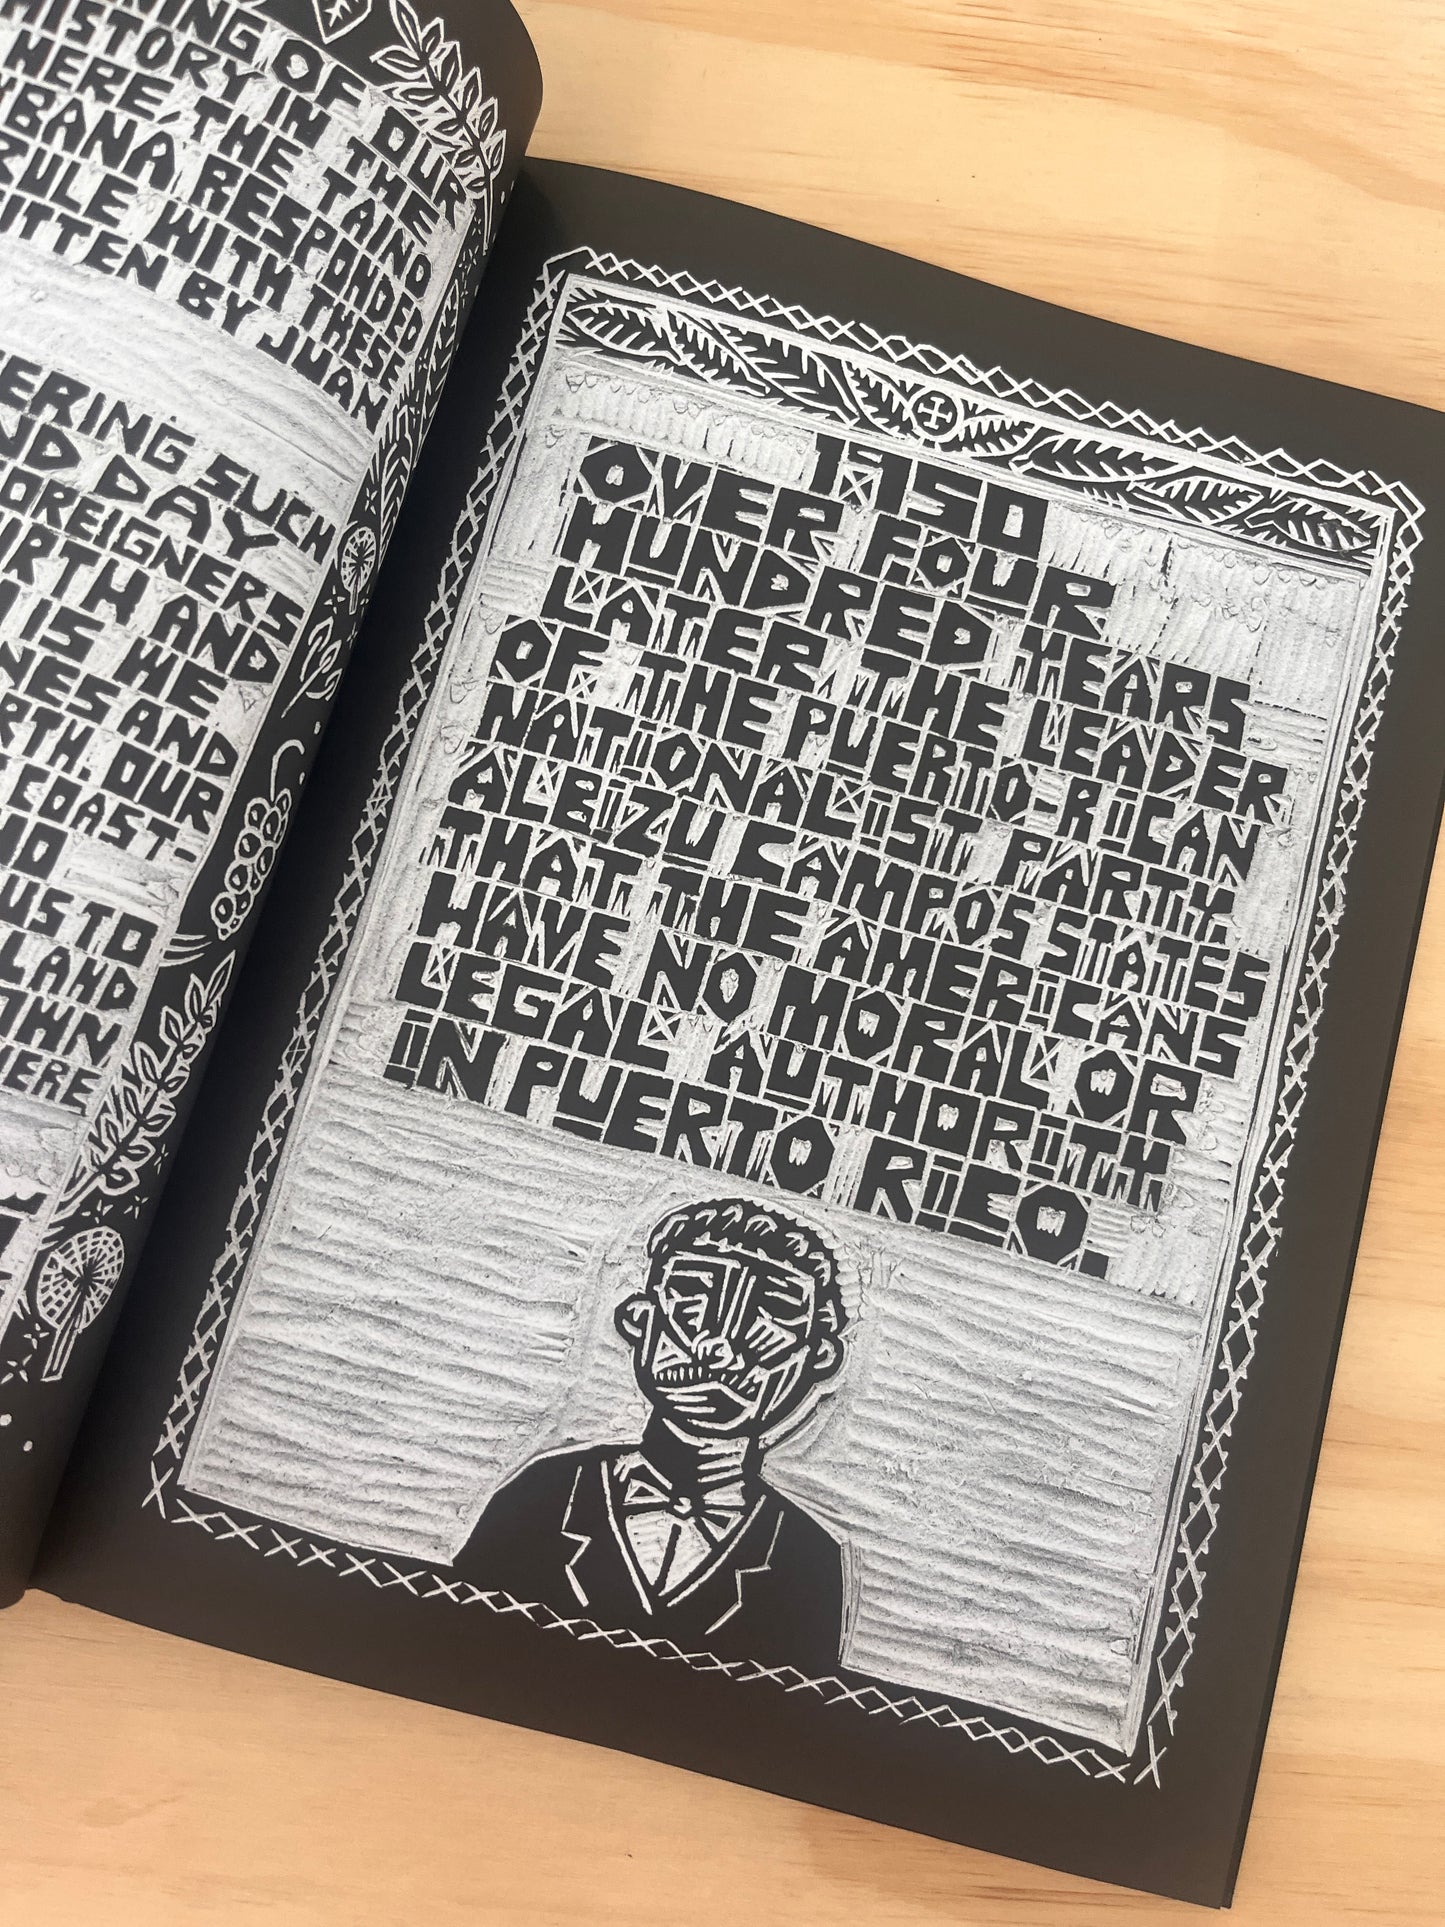 OUR
HISTORY IN THE
HERE, THE TAINO
RESPONDED
RULE WITH THESE
BY JUAN
SUCH
DAY
FOREIGNERS
AND
IS WE
AND
OUR
COAST-
US TO
LAND
1950
OVER FOUR
HUNDRED YEARS
LATER THE LEADER
OF THE PUERTO-RICAN
NATIONALIST PARTY
ALBIZU CAMPOS STATES
THAT THE AMERICANS
HAVE NO MORAL OR
LEGAL AUTHORITY
IN PUERTO RICO.